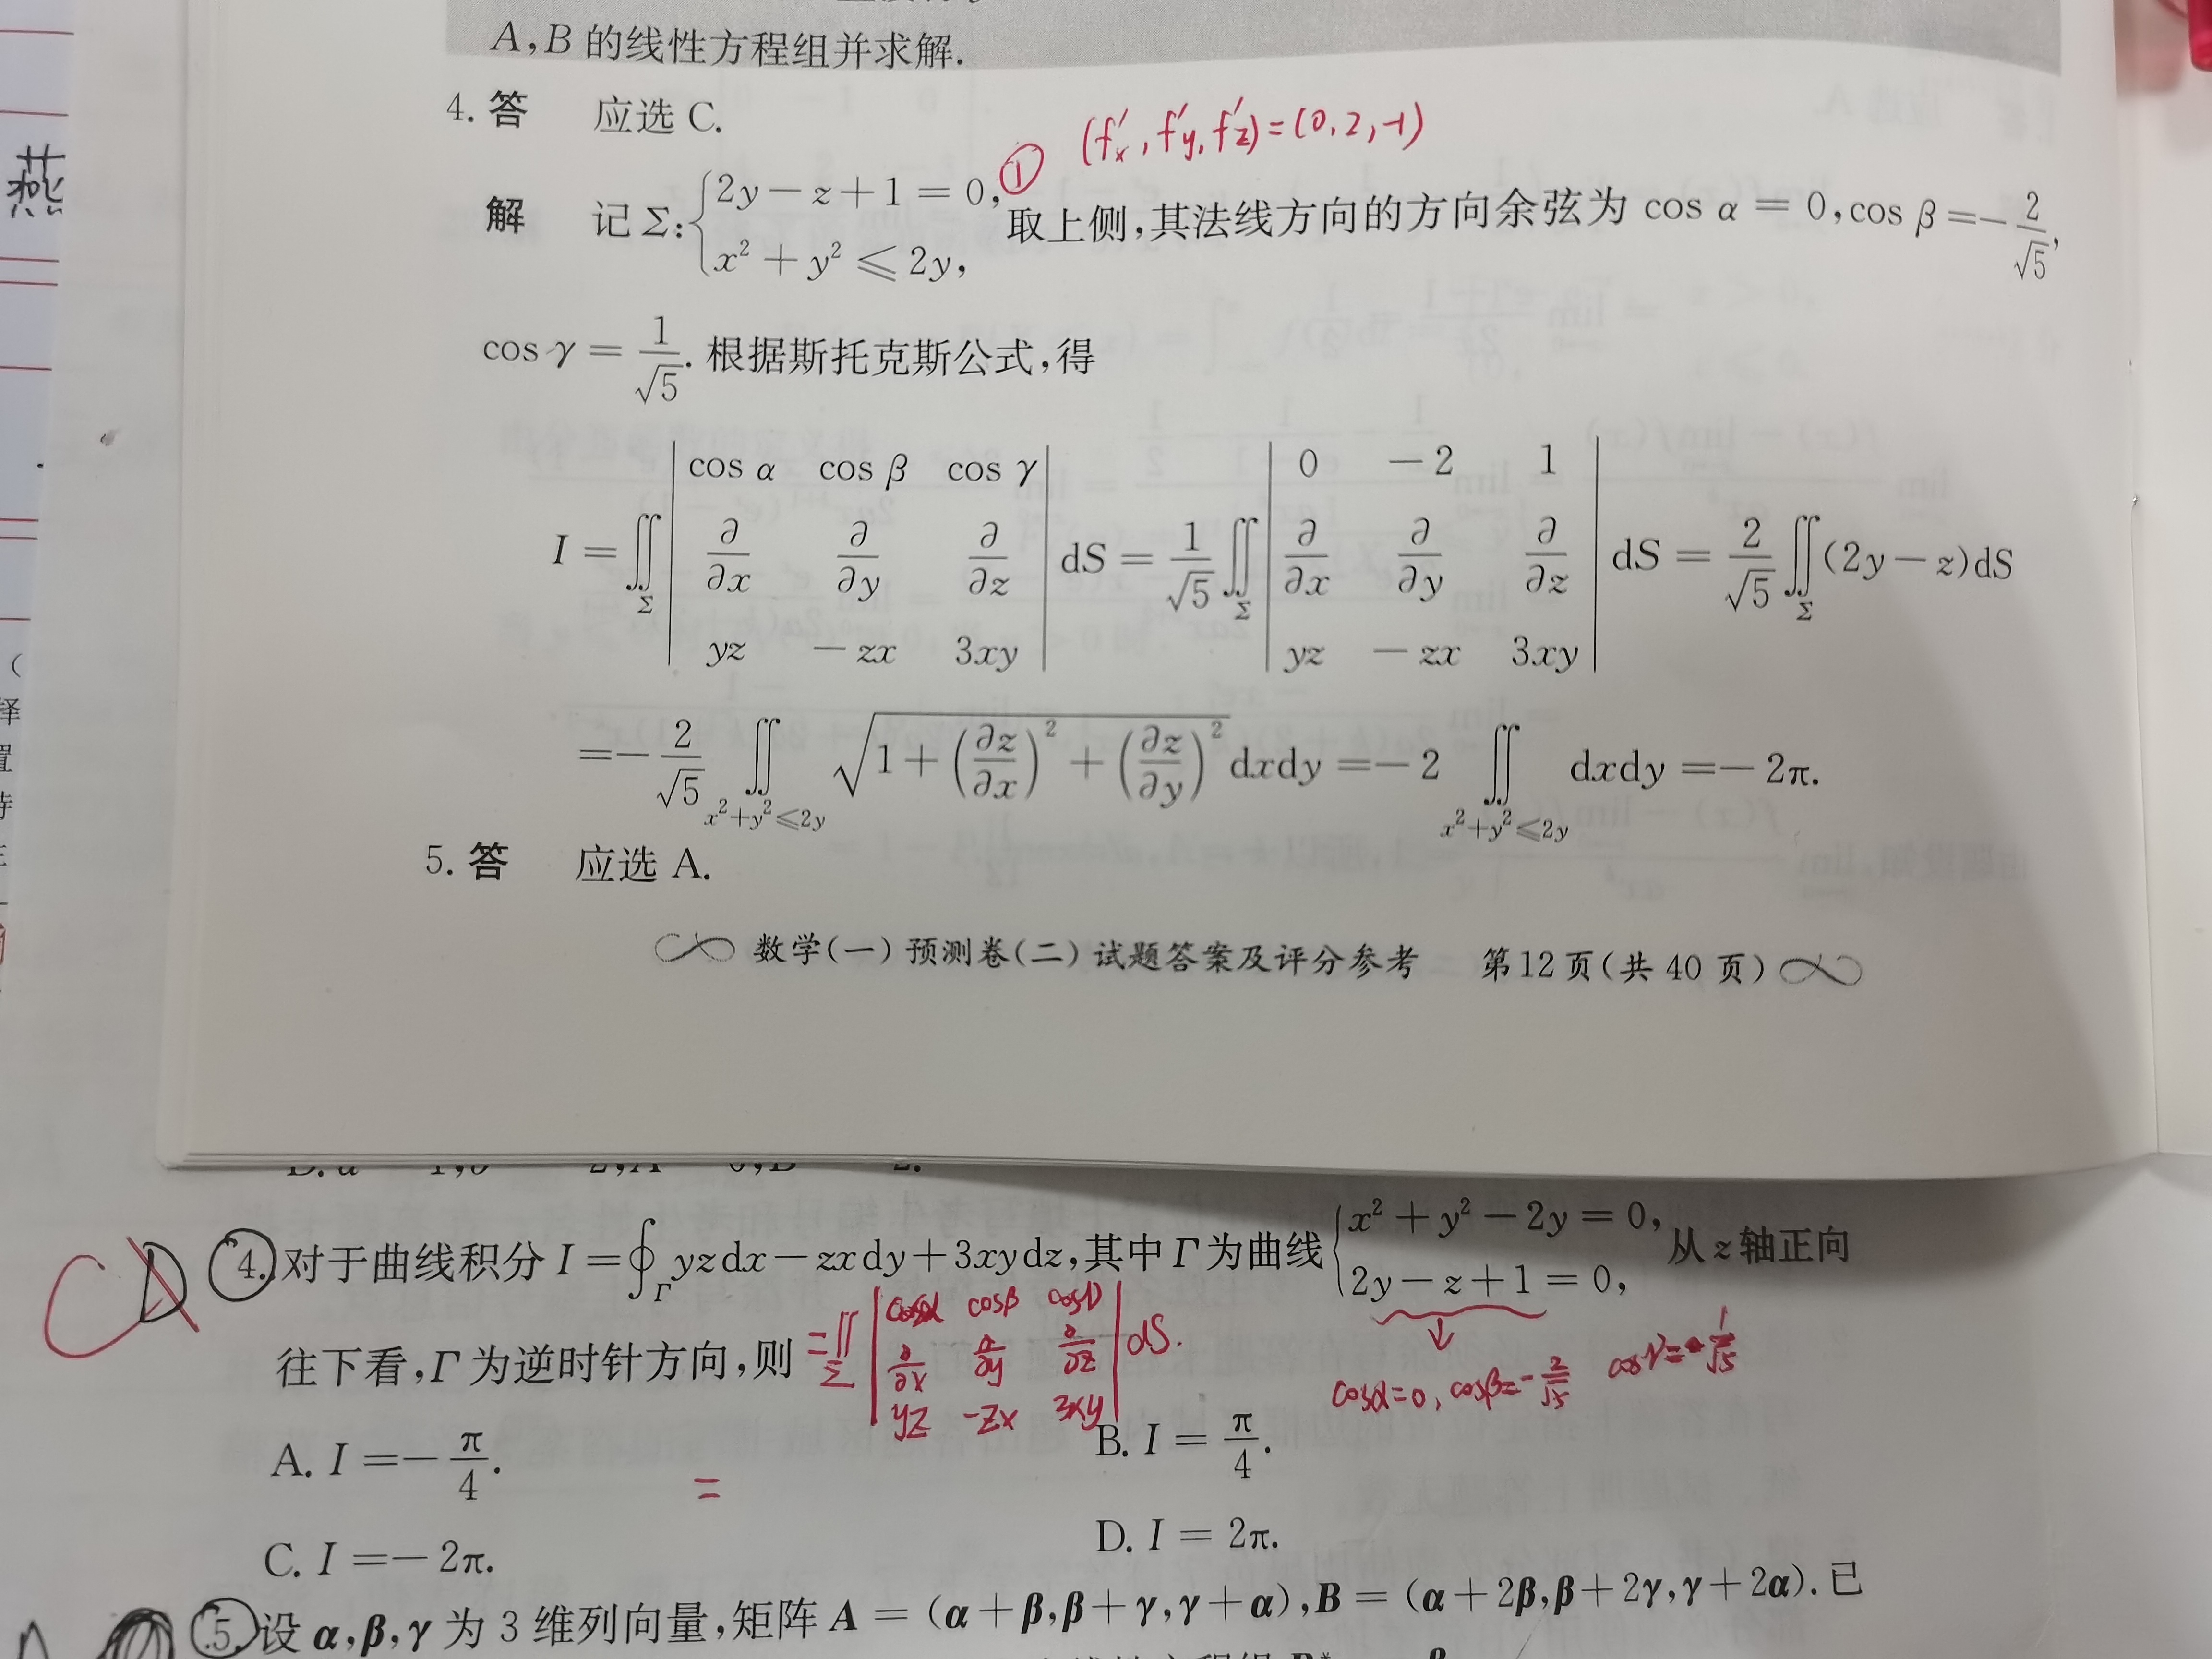 A,B 的线性方程组并求解.
4. 答 应选 C.
(f′x, f′y, f′z)=(0,2,-1)
①
解 记 Σ: { 2y − z + 1 = 0, x² + y² ⩽ 2y, 取上侧,其法线方向的方向余弦为 cos α = 0, cos β = −2/√5,
cos γ = 1/√5. 根据斯托克斯公式,得
I = ∬_Σ | cos α cos β cos γ ; ∂/∂x ∂/∂y ∂/∂z ; yz −zx 3xy | dS = 1/√5 ∬_Σ | 0 −2 1 ; ∂/∂x ∂/∂y ∂/∂z ; yz −zx 3xy | dS = 2/√5 ∬_Σ (2y − z)dS
= −2/√5 ∬_{x²+y²⩽2y} √(1 + (∂z/∂x)² + (∂z/∂y)²) dxdy = −2 ∬_{x²+y²⩽2y} dxdy = −2π.
5. 答 应选 A.
数学(一)预测卷(二)试题答案及评分参考 第12页(共 40 页)
燕
C D
4. 对于曲线积分 I = ∮_Γ yzdx − zxdy + 3xydz,其中 Γ 为曲线 { x² + y² − 2y = 0, 2y − z + 1 = 0, 从 z 轴正向
往下看,Γ 为逆时针方向,则
=∬_Σ | cosα cosβ cosγ ; ∂/∂x ∂/∂y ∂/∂z ; yz -zx 3xy | dS.
cosα=0, cosβ=-2/√5 cosγ=1/√5
A. I = −π/4.
B. I = π/4.
=
C. I = −2π.
D. I = 2π.
5. 设 α,β,γ 为 3 维列向量,矩阵 A = (α+β,β+γ,γ+α),B = (α+2β,β+2γ,γ+2α).已